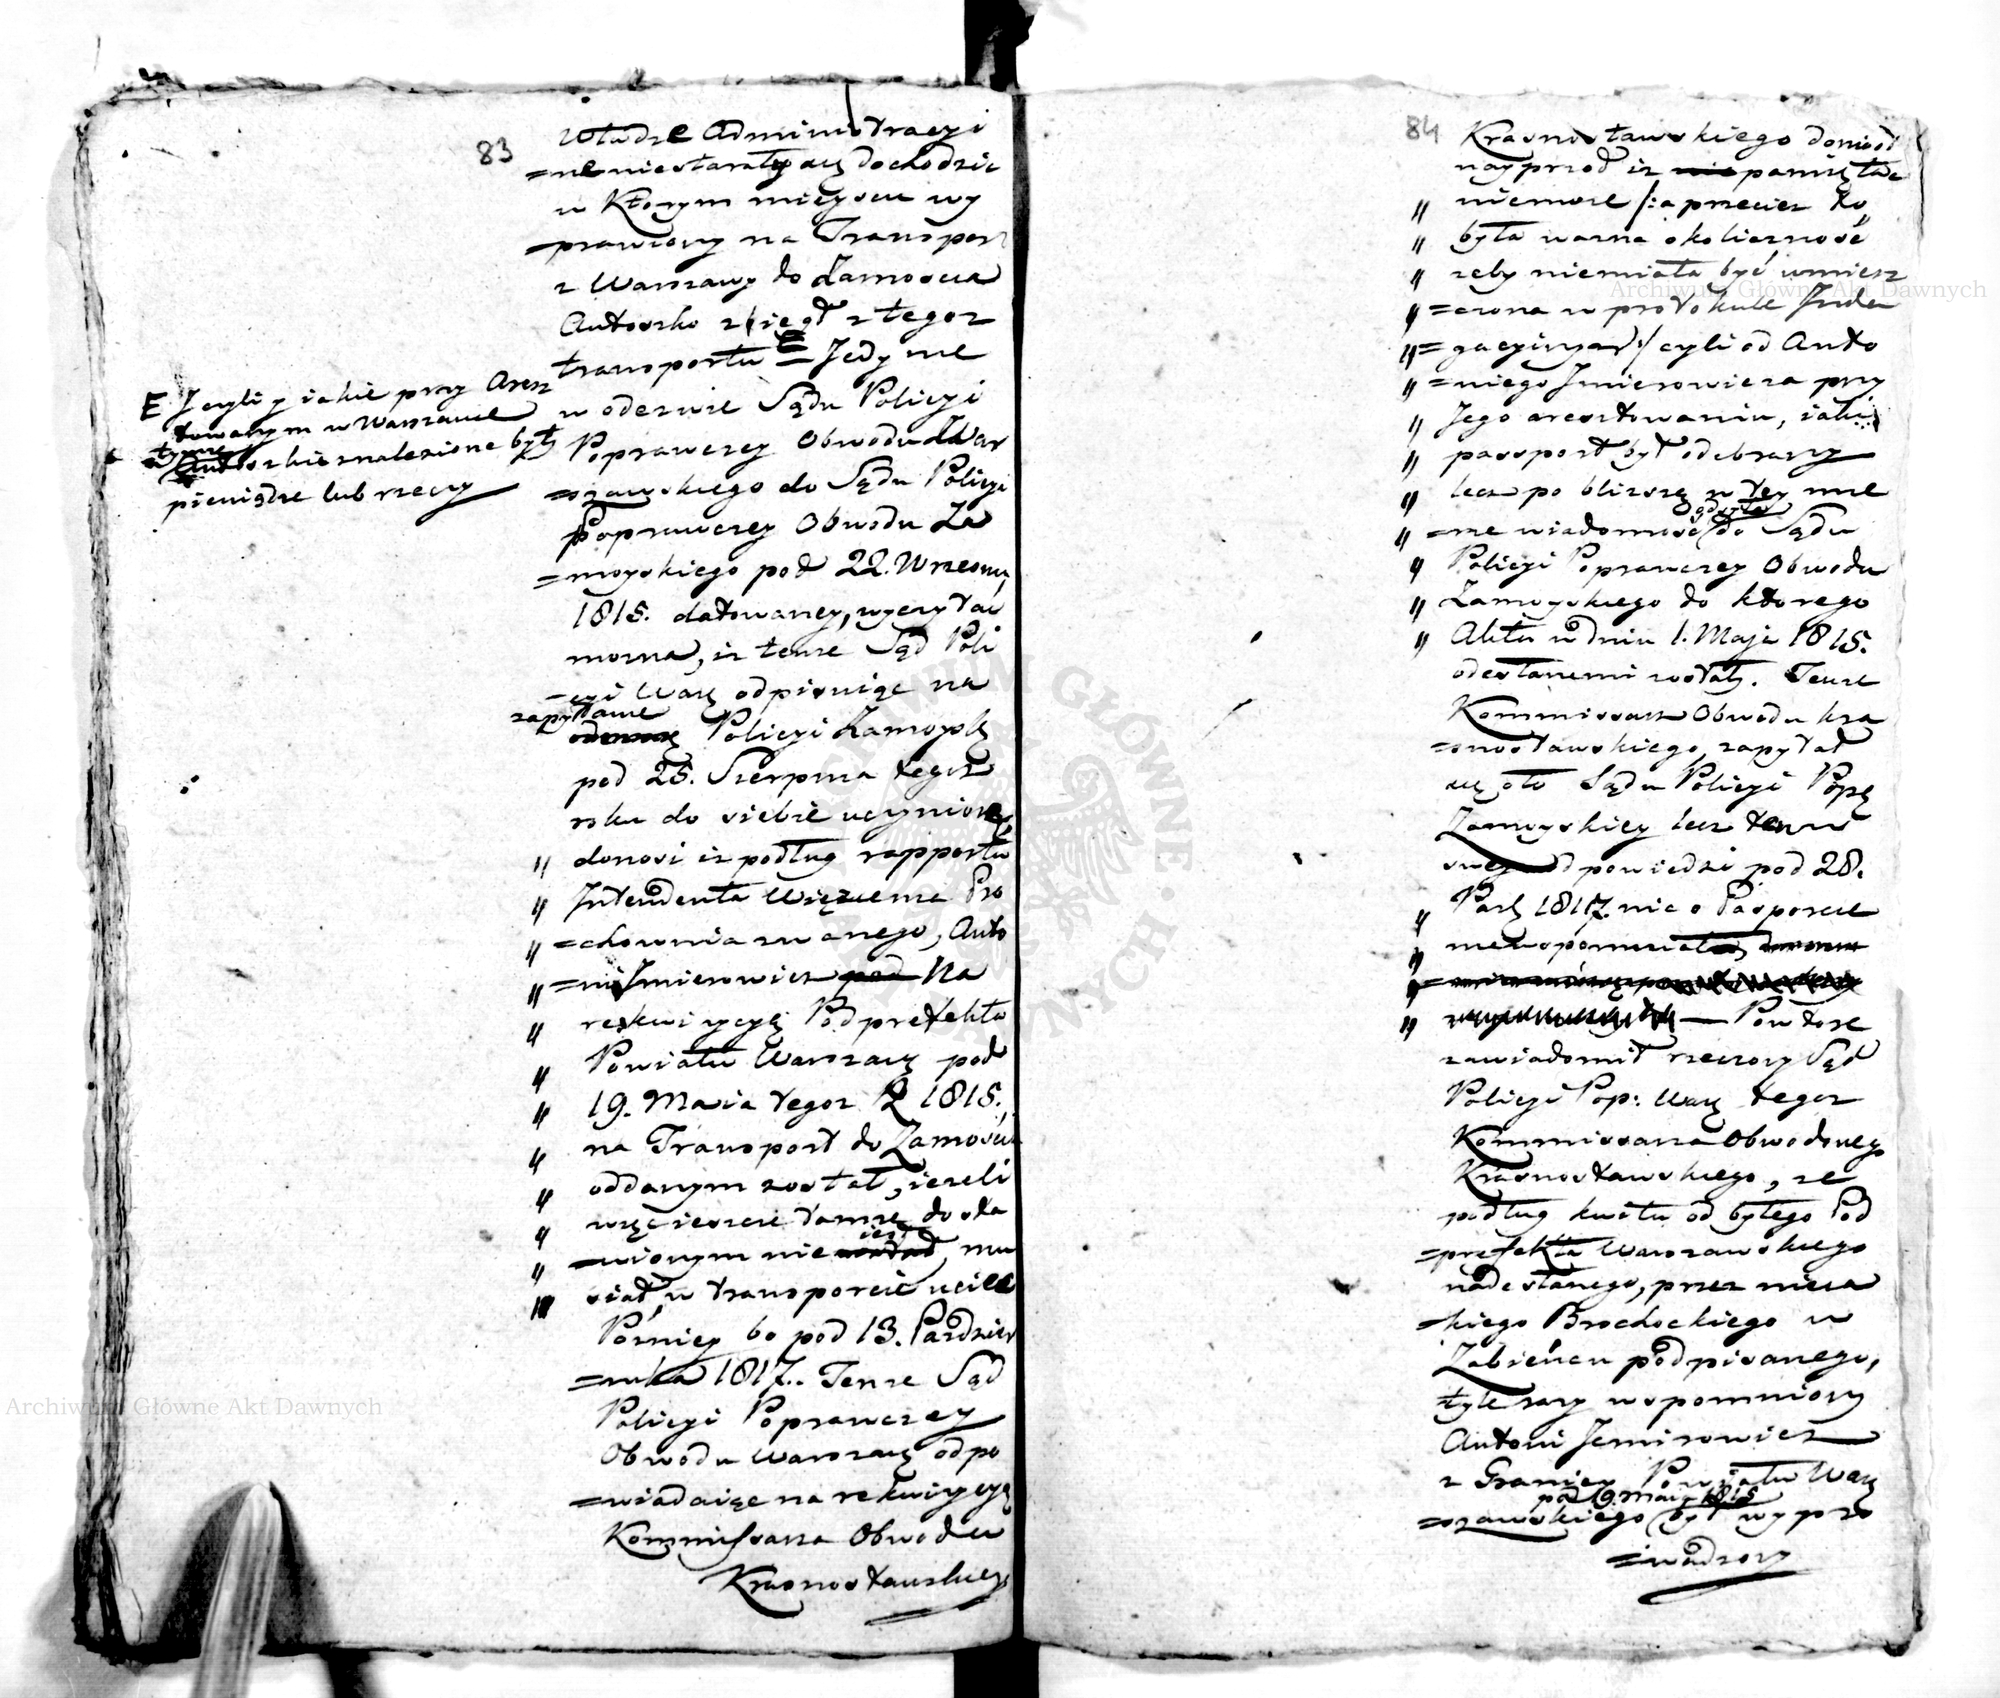 83
Władze Administracyi
=ne niestarały się dochodzić
w Którym mieyscu wy
=prawiony na Transport
z Warszawy do Zamościa
Antoszko zbiegł z tegoż
transportu E = Jedynie
w odezwie Sądu Policyi
Poprawczey Obwodu War
=szawskiego do Sądu Policyi
Poprawczey Obwodu Za
=moyskiego pod 22. Wrześnu
1815. datowaney, wyczytać
można, iż tenże Sąd Poli
=cyi Warsz odpisuiąc na
zapytanie
Policyi Zamoysk
pod 25. Sierpnia tegoż
roku do siebie uczynione,
" donosi iż podług rapportu
" Intendenta Więzienia Pro
" =chownia zwanego, Anto
" =ni Jmierowicz pod Na
" rekwizycyę Podprefekta
" Powiatu Warszaw pod
" 19. Maia tegoż R 1815.,
" na Transport do Zamościa
" oddanym został, ieżeli
" więc ieszcze tamże dosta
iest
" =wionym nie został, mu
" siał w transporcie uciec
Pózniey bo pod 13. Paździer
=nika 1817. Tenże Sąd
Policyi Poprawczey
Obwodu Warszaw odpo
=wiadaiąc na rekwizycyę
Kommissarza Obwodu
Krasnostawskiey
E Jczyli y iakie przy Aresz
towanym w Warszawie
tymże
Antoszkie znalezione były
pieniądze lub rzeczy
84
Krasnostawskiego doniósł
nayprzod iż nie pamiętać
" niemoże /:a przecież to
" była ważna okoliczność
" żeby niemiała być umiesz
" =czona w protokule Jnda
" =gacyinym:/ czyli od Anto
" =niego Jmierowicza przy
" Jego aresztowaniu, iaki
" passport był odebrany
" lecz po bliższą w tey mie
odsyła
" =rze wiadomość do Sądu
" Policyi Poprawczey Obwodu
" Zamoyskiego do którego
" Akta w dniu 1. Maja 1815.
odesłanemi zostały. Tenże
Kommissarz Obwodu Kra
=snostawskiego, zapytał
się oto Sądu Policyi Popr
Zamoyskiey lecz ten w
swey odpowiedzi pod 28.
" Paźd 1817. nic o Pasporcie
" niewspomniał
"
" — Powtóre
zawiadomił rzeczony Sąd
Policyi Pop: Warsz tegoż
Kommissarza Obwodowego
Krasnostawskiego, że
podług kwitu od byłego Pod
=prefekta Warszawskiego
nadesłanego, przez nieia
=kiego Brochockiego w
Zabieńcu podpisanego,
tyle razy wspomniony
Antoni Jemirowicz
z Granicy Powiatu War
pod 19. Maia 1815
=szawskiego był wypro
=wadzony
Archiwum Główne Akt Dawnych
Archiwum Główne Akt Dawnych